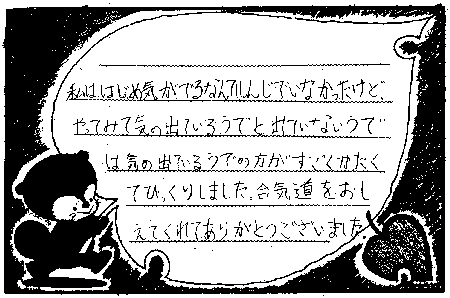 私ははじめ気がでるなんてしんじていなかったけど、
やってみて気の出ているうでと出ていないうで
は気の出ているうでの方がすごくかたく
てびっくりしました。合気道をおし
えてくれてありがとうございました